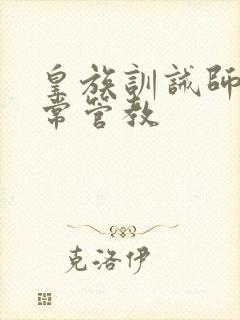 皇族訓誡師
常管教
克洛伊